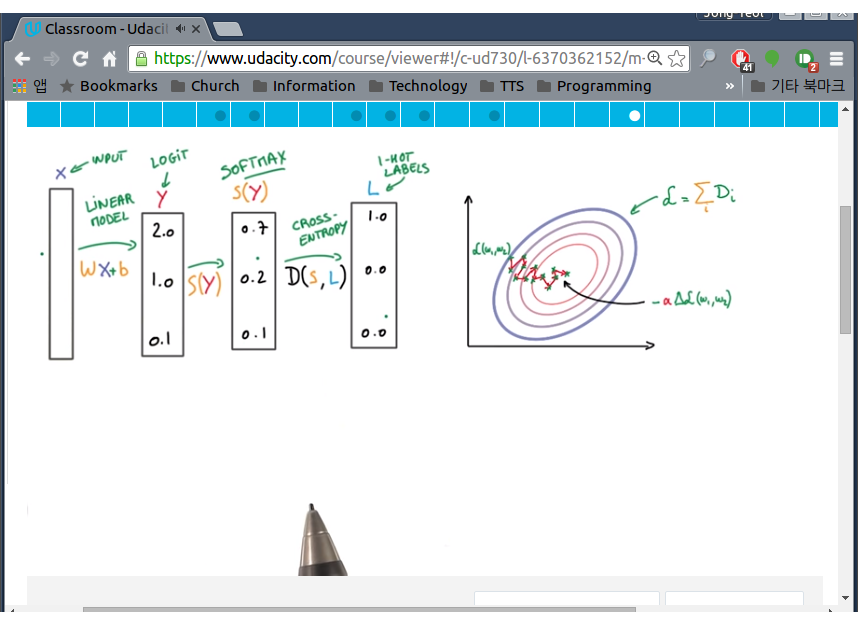 Jong Yeol
Classroom - Udaci
https://www.udacity.com/course/viewer#!/c-ud730/l-6370362152/m-
41
2
앱 Bookmarks Church Information Technology TTS Programming » 기타 북마크
X INPUT
LINEAR MODEL
WX+b
LOGIT
Y
2.0
1.0
0.1
S(Y)
SOFTMAX
S(Y)
0.7
0.2
0.1
CROSS-ENTROPY
D(S, L)
1-HOT LABELS
L
1.0
0.0
0.0
ℒ = Σi Di
ℒ(w₁,w₂)
-α Δℒ(w₁,w₂)